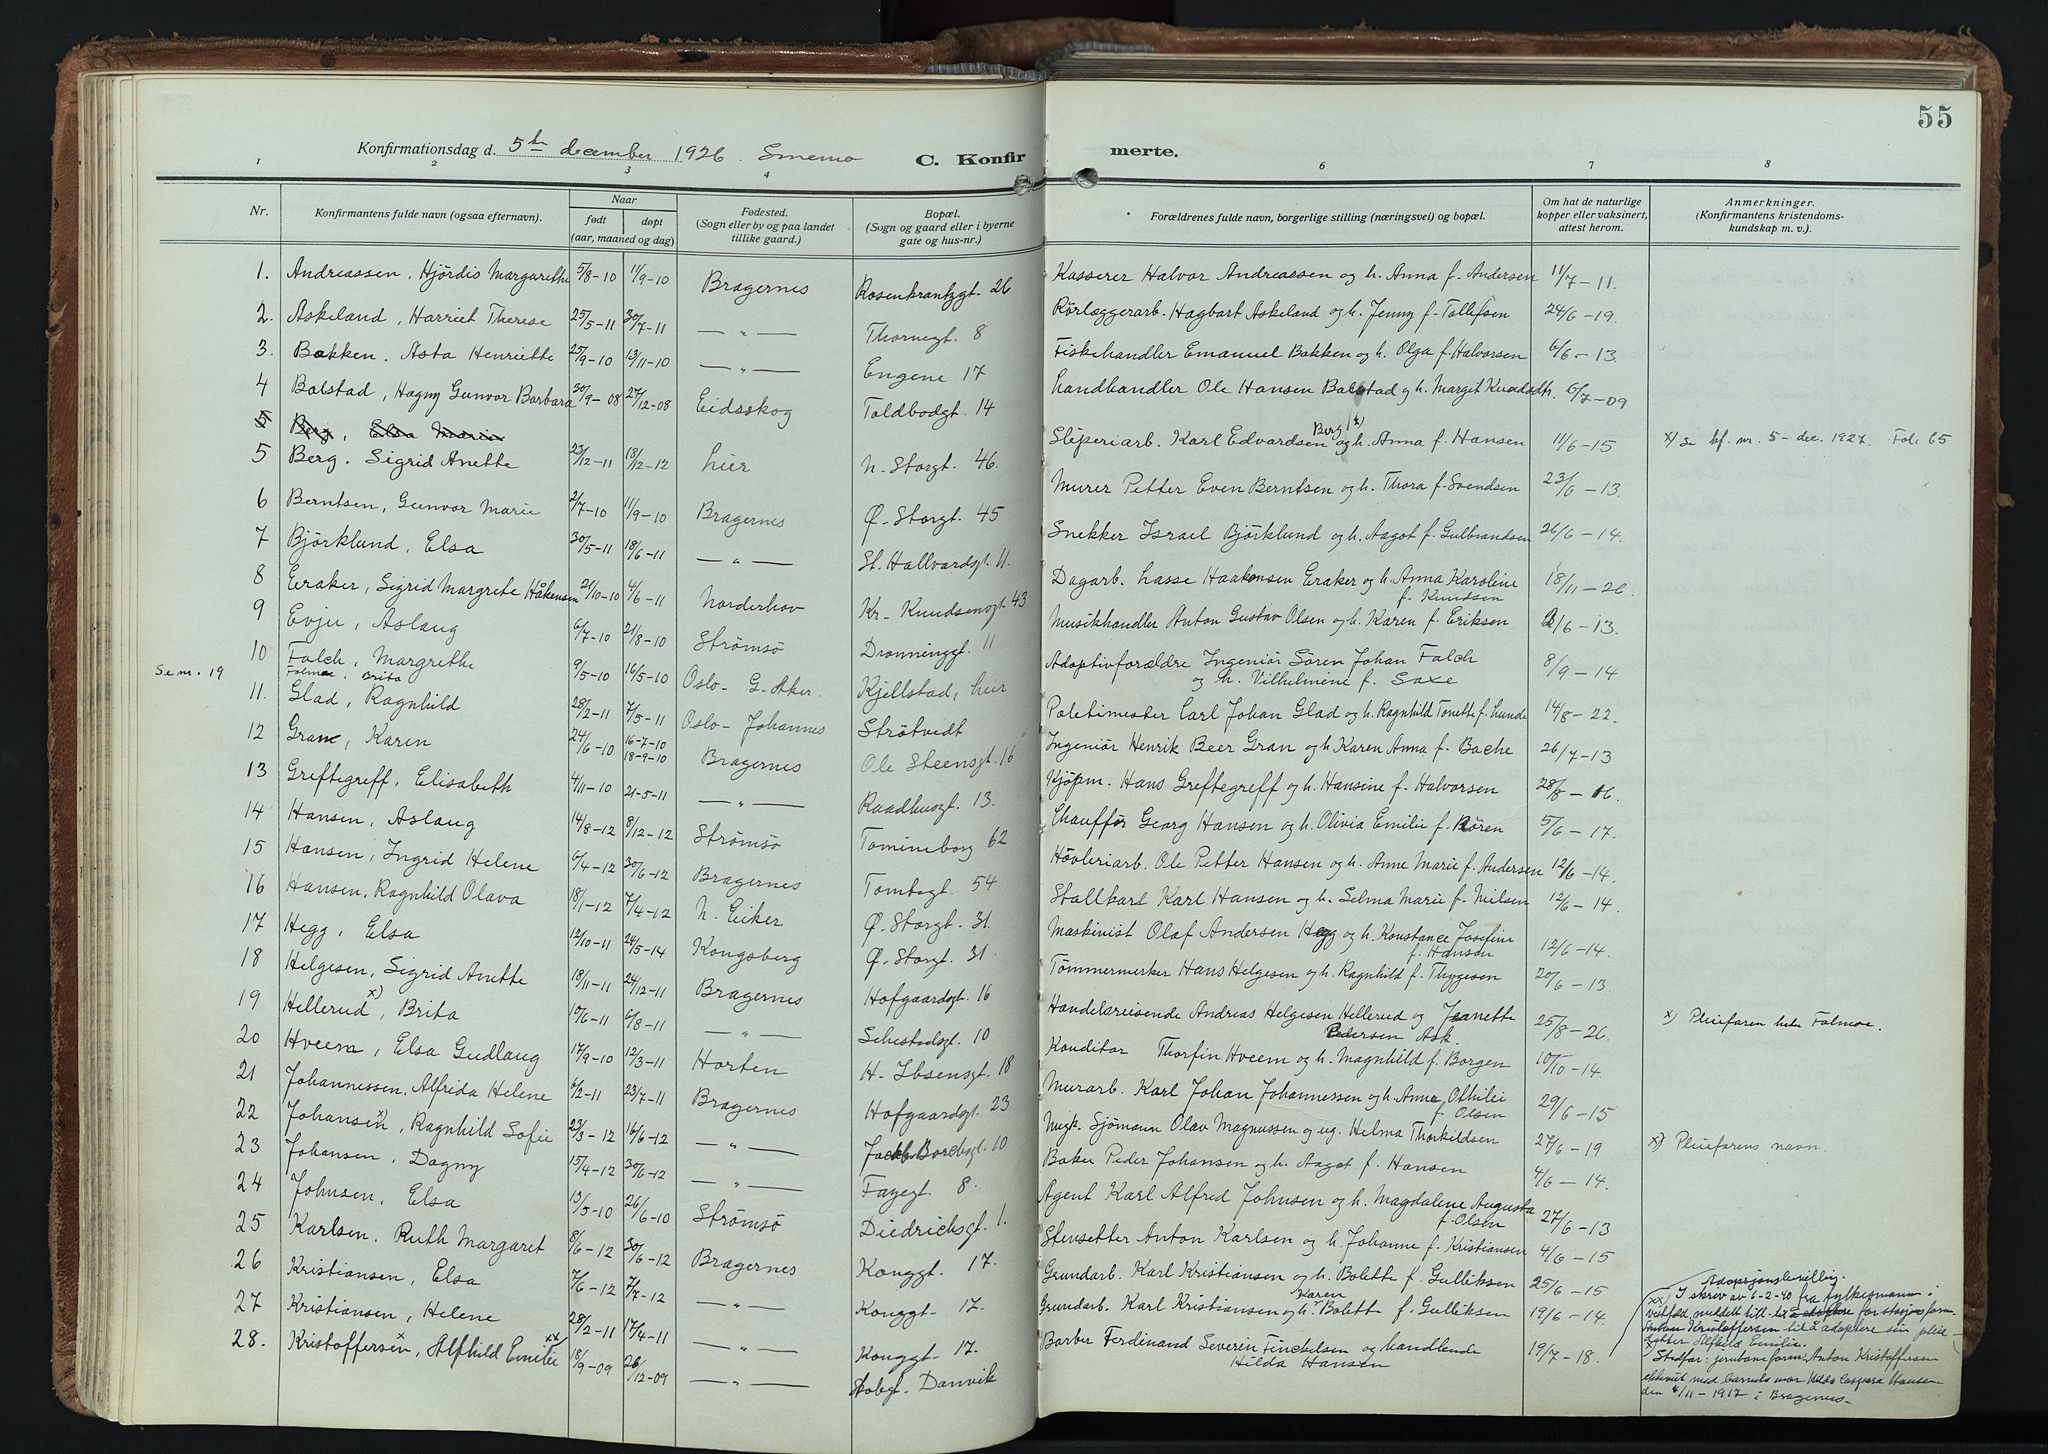 55
Konfirmationsdag d. 5te december 1926. Smemo C. Konfirmerte.
1 2 3 4 6 7 8
Nr.
Konfirmantens fulde navn (ogsaa efternavn).
Naar
født
døpt
(aar, maaned og dag)
Fødested.
(Sogn eller by og paa landet
tillike gaard.)
Bopæl.
(Sogn og gaard eller i byerne
gate og hus-nr.)
Forældrenes fulde navn, borgerlige stilling (næringsvei) og bopæl.
Om hat de naturlige
kopper eller vaksinert,
attest herom.
Anmerkninger.
(Konfirmantens kristendoms-
kundskap m. v.).
1. Andreassen, Hjördis Margarethe 5/8-10 11/9-10 Bragernes Rosenkrantzgt. 26 Kasserer Halvor Andreassen og h. Anna f. Andersen 11/7-11.
2. Askeland, Harriet Therese 25/5-11 30/7-11 — " — Thornegt. 8 Rörlæggerarb. Hagbart Askeland og h. Jenny f. Tollefsen 24/6-19.
3. Bakken. Asta Henriette 25/9-10 13/11-10 — " — Engene 17 Fiskehandler Emanuel Bakken og h. Olga f. Halvorsen 6/6-13.
4 Bolstad, Hagny Gunvor Barbara 30/9-08 27/12-08 Eidsskog Toldbodgt. 14 Landhandler Ole Hansen Bolstad og h. Margit Knudsdtr. 6/7-09
5 Berg, Elsa Marie
5 Berg. Sigrid Anette 23/12-11 18/12-12 hier N. Storgt. 46. Sliperiarb. Karl Edvardsen Berg x) og h. Anna f. Hansen 11/6-15 x) se kf. nr. 5- dec. 1927. Fol. 65
6 Berntsen, Gunvor Marie 2/7-10 11/9-10 Bragernes Ø. Storgt. 45 Murer Petter Even Berntsen og h. Thora f. Svendsen 23/6-13.
7 Björklund, Elsa 30/5-11 18/6-11 — " — St. Hallvardsgt. 11. Snekker Israel Björklund og h. Aagot f. Gulbrandsen 26/6-14.
8 Eraker, Sigrid Margrete Håkensen 21/10-10 4/6-11 Norderhov Kr. Knudsensgt. 43 Dagarb. Lasse Haakonsen Eraker og h. Anna Karoline
f. Knudsen 18/11-26.
9 Evju, Aslaug 6/7-10 21/8-10 Strømsø Dronninggt. 11 Musikhandler Anton Gustav Olsen og h. Karen f. Eriksen /6-13.
10 Falch, Margrethe 9/5-10 16/5-10 Oslo- G. Aker. Kjellstad, hier Adoptivforældre Ingeniør Sören Johan Falch
og h. Vilhelmine f. Saxe 8/9-14
Se nr. 19 Falmoe, Brita
11. Glad, Ragnhild 28/2-11 7/5-11 Oslo- Johannes Strøtvedt Politimester Carl Johan Glad og h. Ragnhild Tonette f. Lunde 14/8-22.
12 Gran, Karen 24/6-10 16-7-10
18-9-10 Bragernes Ole Steensgt. 16 Ingeniør Henrik Beer Gran og h. Karen Anna f. Bache 26/7-13
13 Greftegreff, Elisabeth 4/11-10 21-5-11 — " — Raadhusgt. 13. Kjøpm. Hans Greftegreff og h. Hansine f. Halvorsen 28/8-16.
14 Hansen, Aslaug 14/8-12 8/12-12 Strømsø Tomineborg 62 Chauffør Georg Hansen og h. Olivia Emilie f. Røren 5/6-17.
15 Hansen, Ingrid Helene 6/4-12 30/6-12 Bragernes Tomtegt. 54 Høvleriarb. Ole Petter Hansen og h. Anne Marie f. Andersen 12/6-14.
16 Hansen, Ragnhild Olava 18/1-12 7/4-12 N. Eiker Ø. Storgt. 31. Stallkarl Karl Hansen og h. Selma Marie f. Nielsen 12/6-14.
17 Hegg, Elsa 12/10-11 24/5-14 Kongsberg Ø. Storgt. 31. Maskinist Olaf Andersen Hegg og h. Konstance Josefine
f. Hanson 12/6-14.
18 Helgesen, Sigrid Anette 18/11-11 24/12-11 Bragernes Hofgaardsgt. 16 Tømmermerker Hans Helgesen og h. Ragnhild f. Thygesen 20/6-13.
19 Hellerud x), Brita 10/6-11 6/8-11 — " — Sehestedsgt. 10 Handelsreisende Andreas Helgesen Hellerud og Jeanette
Pedersen Ask. 25/8-26. x) Pleiefaren heter Falmoe.
20 Hveem, Elsa Gudlaug 17/9-10 12/3-11 Horten H. Ibsensgt. 18 Konditor Thorfin Hveem og h. Magnhild f. Borgen 10/10-14.
21 Johannessen, Alfrida Helene 6/2-11 23/7-11 Bragernes Hofgaardsgt. 23 Murarb. Karl Johan Johannessen og h. Anna Othilie
f. Olsen 29/6-15
22 Johansen x), Ragnhild Sofie 23/3-12 16/6-12 — " — Jacob Borchsgt. 10 Ungk. Sjömann Olav Magnussen og ug. Helma Thorkildsen 27/6-19 x) Pleiefarens navn.
23 Johansen, Dagny 15/4-12 30/6-12 — " — Fayegt. 8. Baker Peder Johansen og h. Aagot f. Hansen 4/6-14.
24 Johnsen, Elsa 13/5-10 26/6-10 Strømsø Diedrichsgt. 1. Agent Karl Alfred Johnsen og h. Magdalene Augusta
f. Olsen 27/6-13
25 Karlsen, Ruth Margaret 8/6-12 30/6-12 Bragernes Konggt. 17. Stensetter Anton Karlsen og h. Johanne f. Kristiansen 4/6-15
26 Kristiansen, Elsa 7/6-12 7/7-12 — " — Konggt. 17. Grundarb. Karl Kristiansen og h. Bolette f. Gulliksen 25/6-15
27 Kristiansen, Helene 28/2-11 17/4-11 — " — Konggt. 17. Grundarb. Karl Kristiansen og h. Karen Bolette f. Gulliksen 19/6-14.
28. Kristoffersen x, Alfhild Emilie xx) 18/9-09 26/12-09 — " — Danvik Barber Ferdinand Severin Finckelsen og handlende
Hilda Hansen 19/7-18.
Adopsjonsbevilling.
xx) I skrev av 6-2-40 fra fylkesmann i
Vestfold, meddelt till. til å adoptere for stasjonsform.
Anton Kristoffersen til å adoptere sin pleie-
datter Alfhild Emilie.
x) Stedfar: jernbaneform. Anton Kristoffersen
ekteviet med barnets mor Hilda Caspara Hansen
den 4/11-1917 i Bragernes.